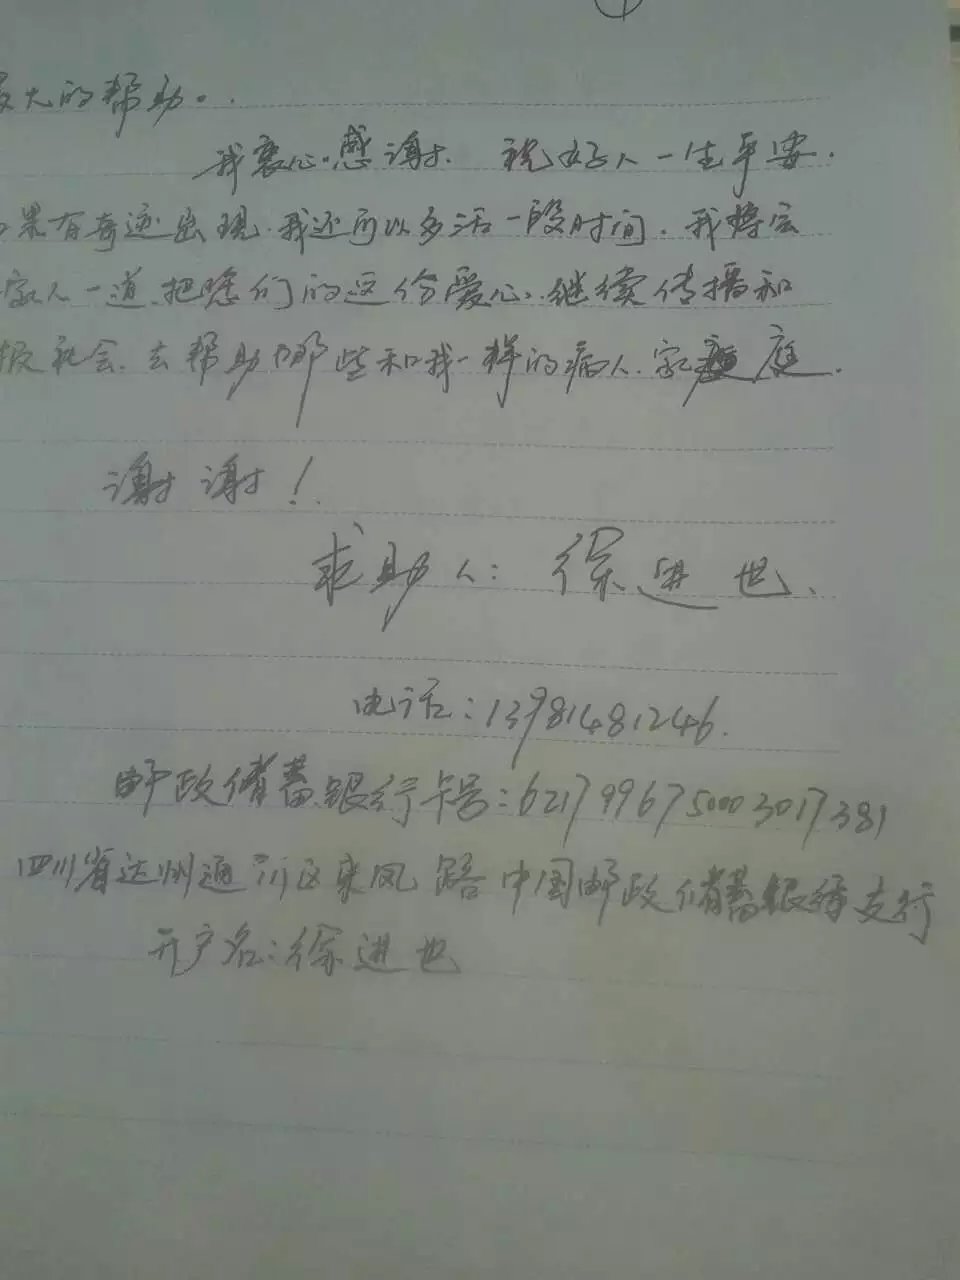 最大的帮助。.
我衷心感谢. 祝好人一生平安.
如果有奇迹出现.我还可以多活一段时间.我将会
家人一道.把您们的这份爱心,继续传播和
报社会.去帮助哪些和我一样的病人.家庭.
谢谢!
求助人:徐进也、
电话:13981481246.
邮政储蓄银行卡号:6217996750003017381
四川省达州通川区来凤路中国邮政储蓄银行支行
开户名:徐进也